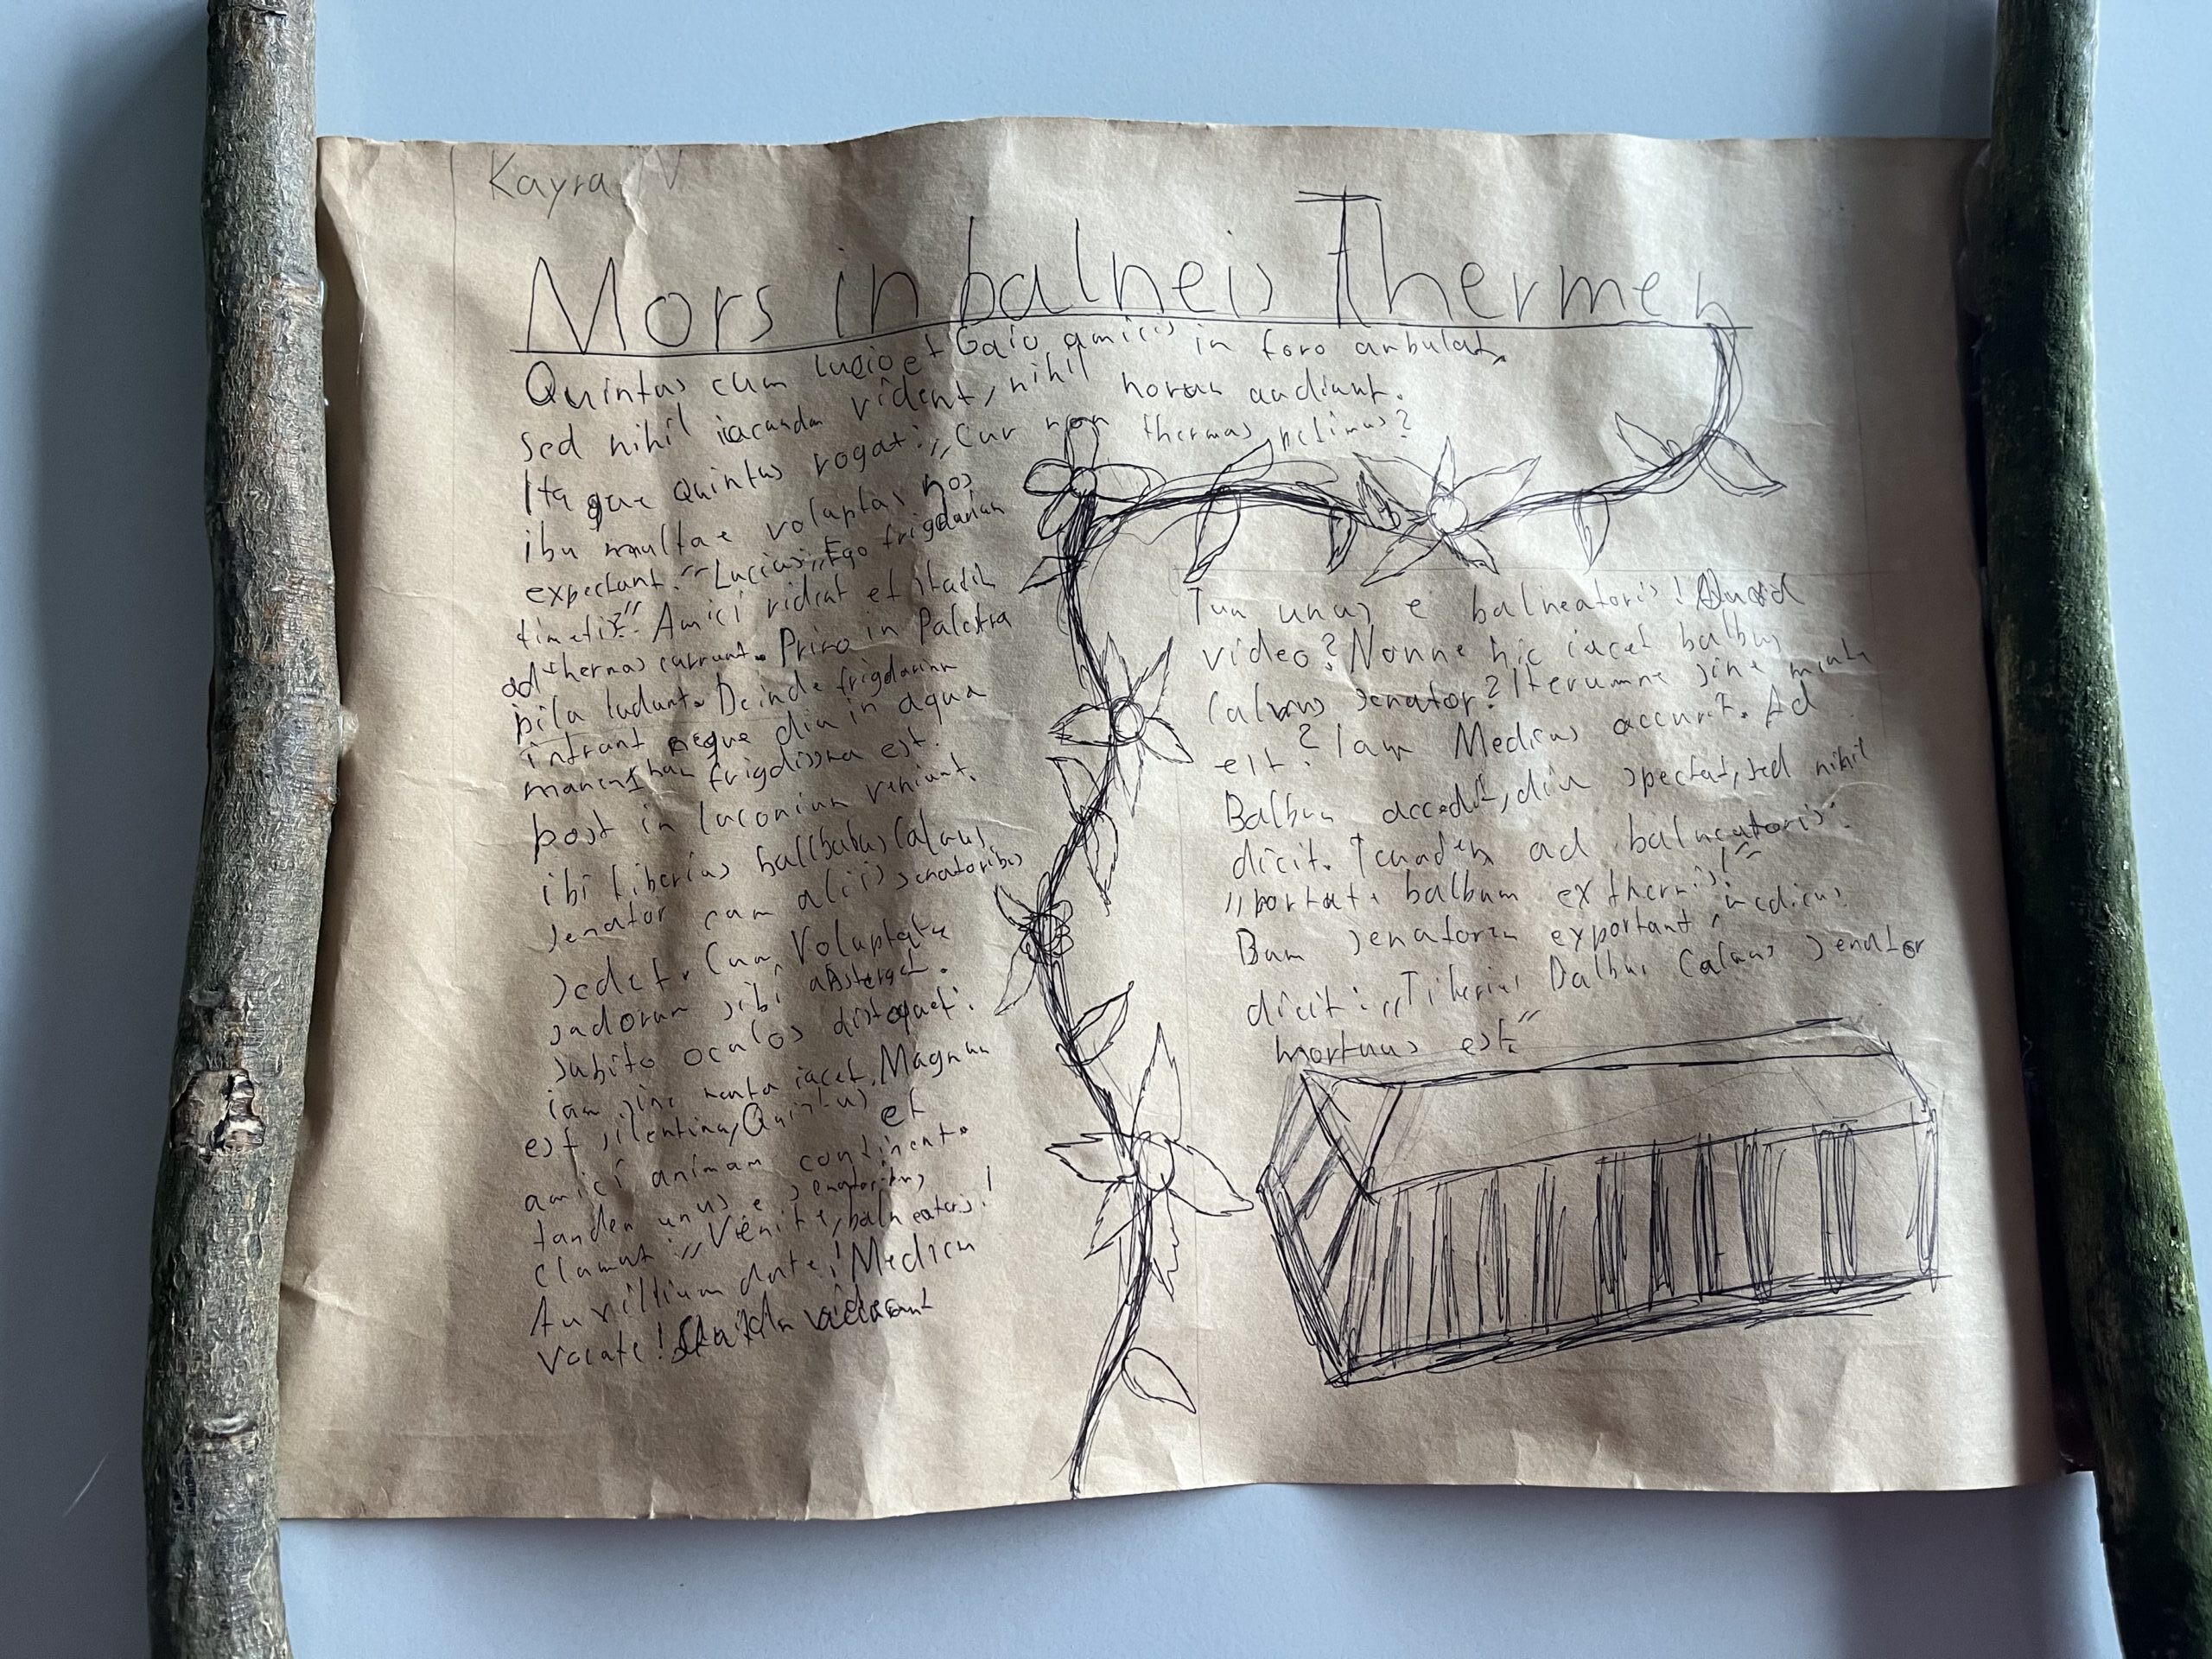 Kayra N
Mors in balneis Thermen
Quintus cum Lucio et Gaio amicis in foro anbulat,
sed nihil iacundm vident, nihil horun audiunt.
Itaque Quintus rogat: „Cur non thermas petimus?
ibu multae voluptas nos
expectant." Lucius: „Ego frigdariun
timetis?" Amici rident et statih
ad thermas currunt. Primo in Palestra
pila ludunt. Deinde frigdarinn
intrant neque diu in aqua
manent nam frigdissma est.
post in laconiun veniunt.
ibi Tiberius balbus Calvus
senator cum aliis senatoribus
sedet. Cum Voluptate
sudorum sibi absterget.
subito oculos distoquet:
iam sine menta iacet. Magnun
est silentina, Quintus et
amici animam continent.
tanden unus e senatoribus
clamat: „Venite, balneatoris!
Auxillium date! Medicu
vocate!
Tun unus e balneatoris! Quid
video? Nonne hic iacet balbus
Calvus senator? Iterumne sine menta
est? Iam Medicus accurit. Ad
Balbum accedit, diu spectat, sed nihil
dicit. Tcuaden ad balneatoris:
„portate balbum ex thermis!"
Bum senatorin exportant, medicus
dicit: „Tiberius Dalbus Calvus senator
mortuus est"